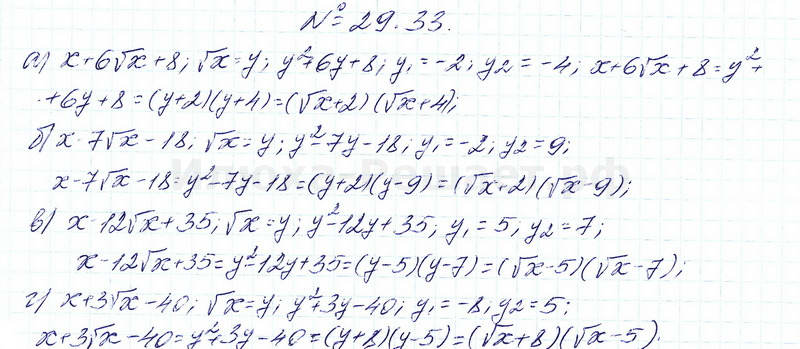 № 29.33.
а) x+6√x+8; √x=y; y²+6y+8; y₁=-2; y₂=-4; x+6√x+8=y²+
+6y+8=(y+2)(y+4)=(√x+2)(√x+4);
б) x-7√x-18; √x=y; y²-7y-18; y₁=-2; y₂=9;
x-7√x-18=y²-7y-18=(y+2)(y-9)=(√x+2)(√x-9);
в) x-12√x+35; √x=y; y²-12y+35; y₁=5; y₂=7;
x-12√x+35=y²-12y+35=(y-5)(y-7)=(√x-5)(√x-7);
г) x+3√x-40; √x=y; y²+3y-40; y₁=-8, y₂=5;
x+3√x-40=y²+3y-40=(y+8)(y-5)=(√x+8)(√x-5).